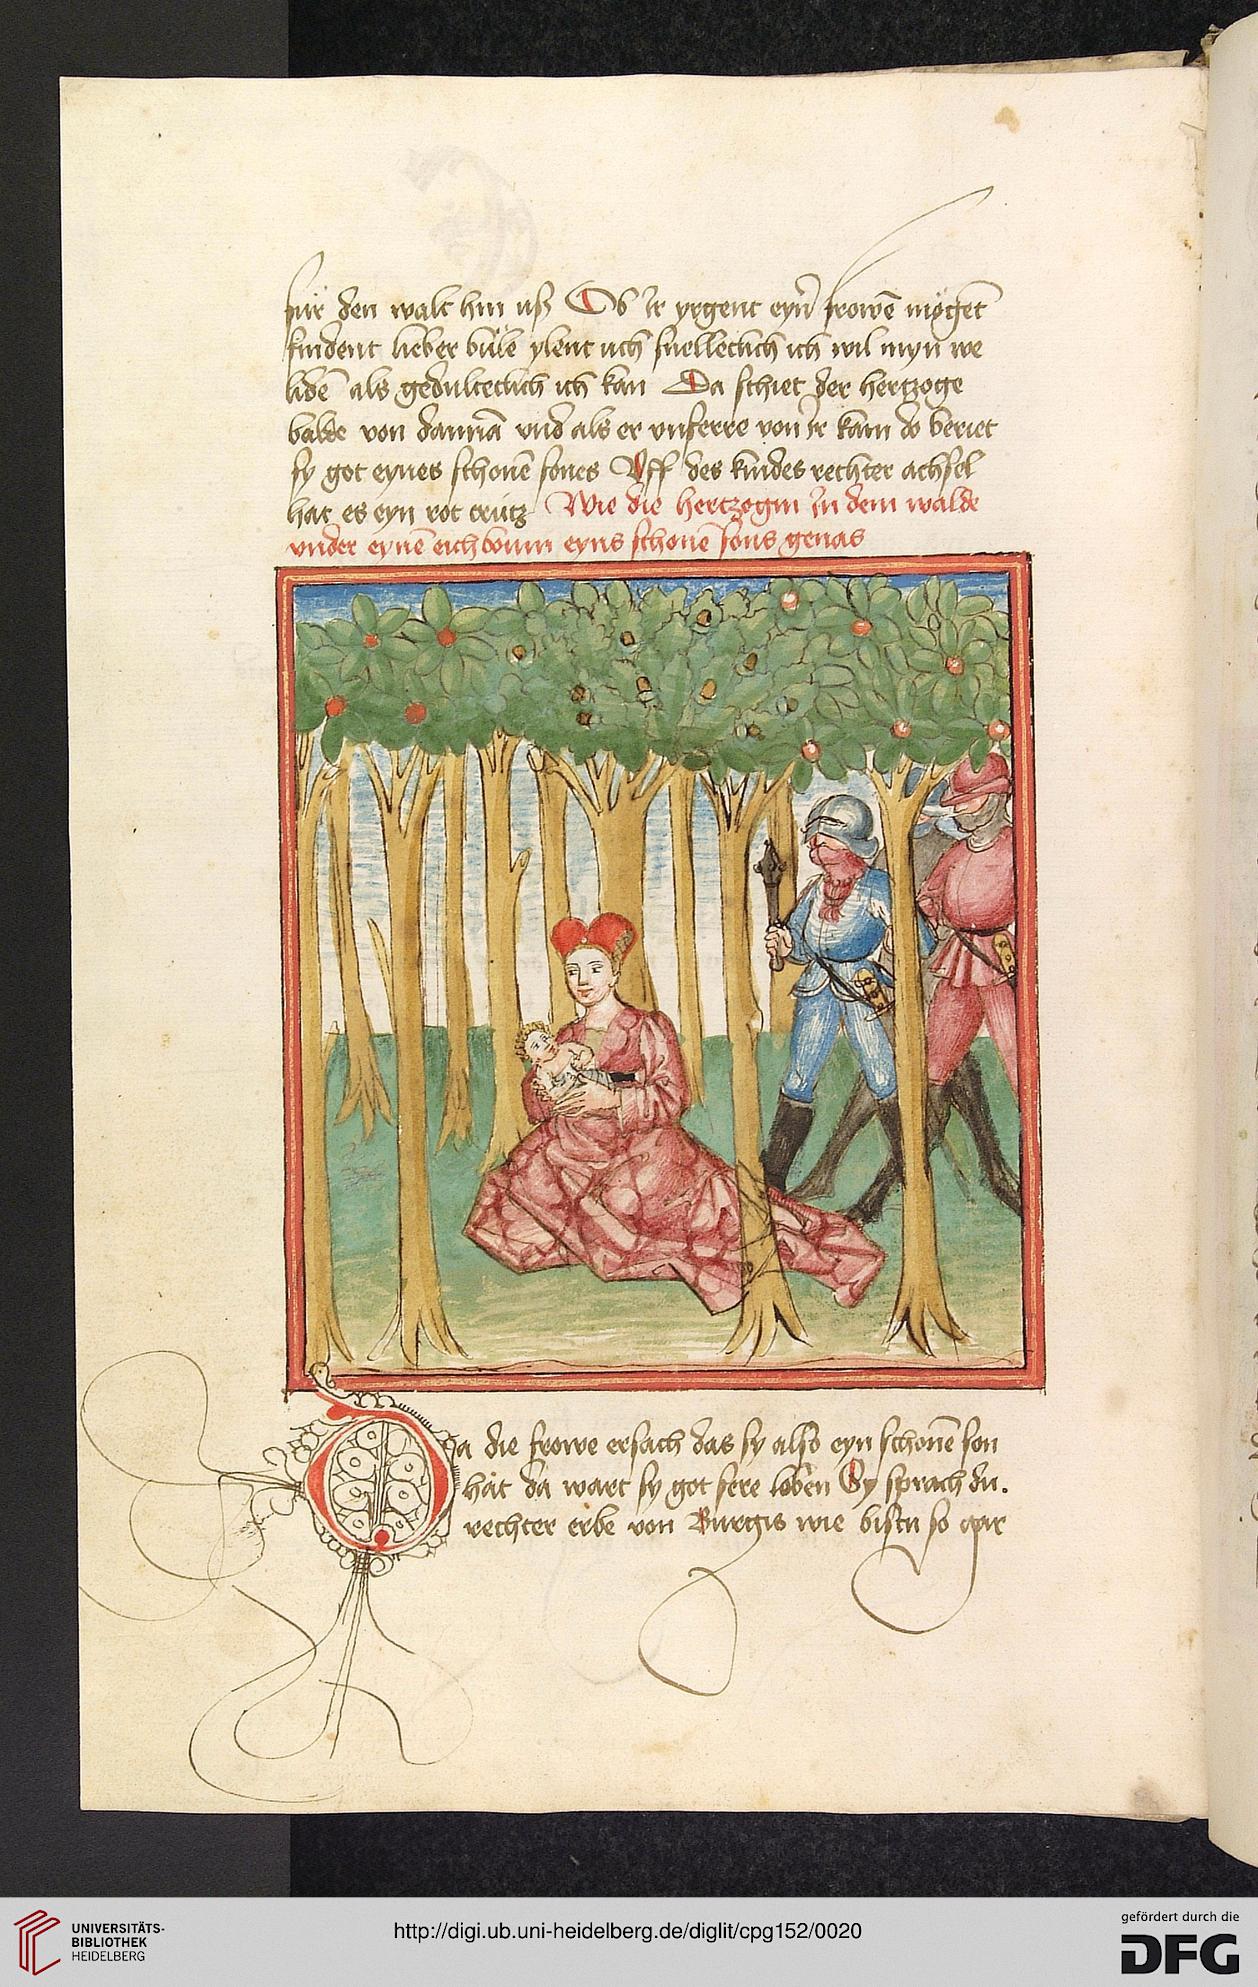 für den walt hin uß Ob ir yrgent eyn̄ frowē mög̈et
findent lieber būle ylent uch snelleclich ich wil myn we
lidē als gedulteclich ich kan Da schiet der hertzoge
balde von dannā vnd als er vnferre von ir kam do beriet
sy got eynes schonē sones Vff des kindes rechter achsel
hat es eyn rot crütz Wie die hertzogin in dem walde
vnder eynē eichboum eyns schonē sons genas
Da die frowe ersach das sy also eyn schonē son
hāt da wart sy got sere loben Sy sprach du.
rechter erbe von Burgis wie bistu so gar
UNIVERSITÄTS-
BIBLIOTHEK
HEIDELBERG
http://digi.ub.uni-heidelberg.de/diglit/cpg152/0020
gefördert durch die
DFG